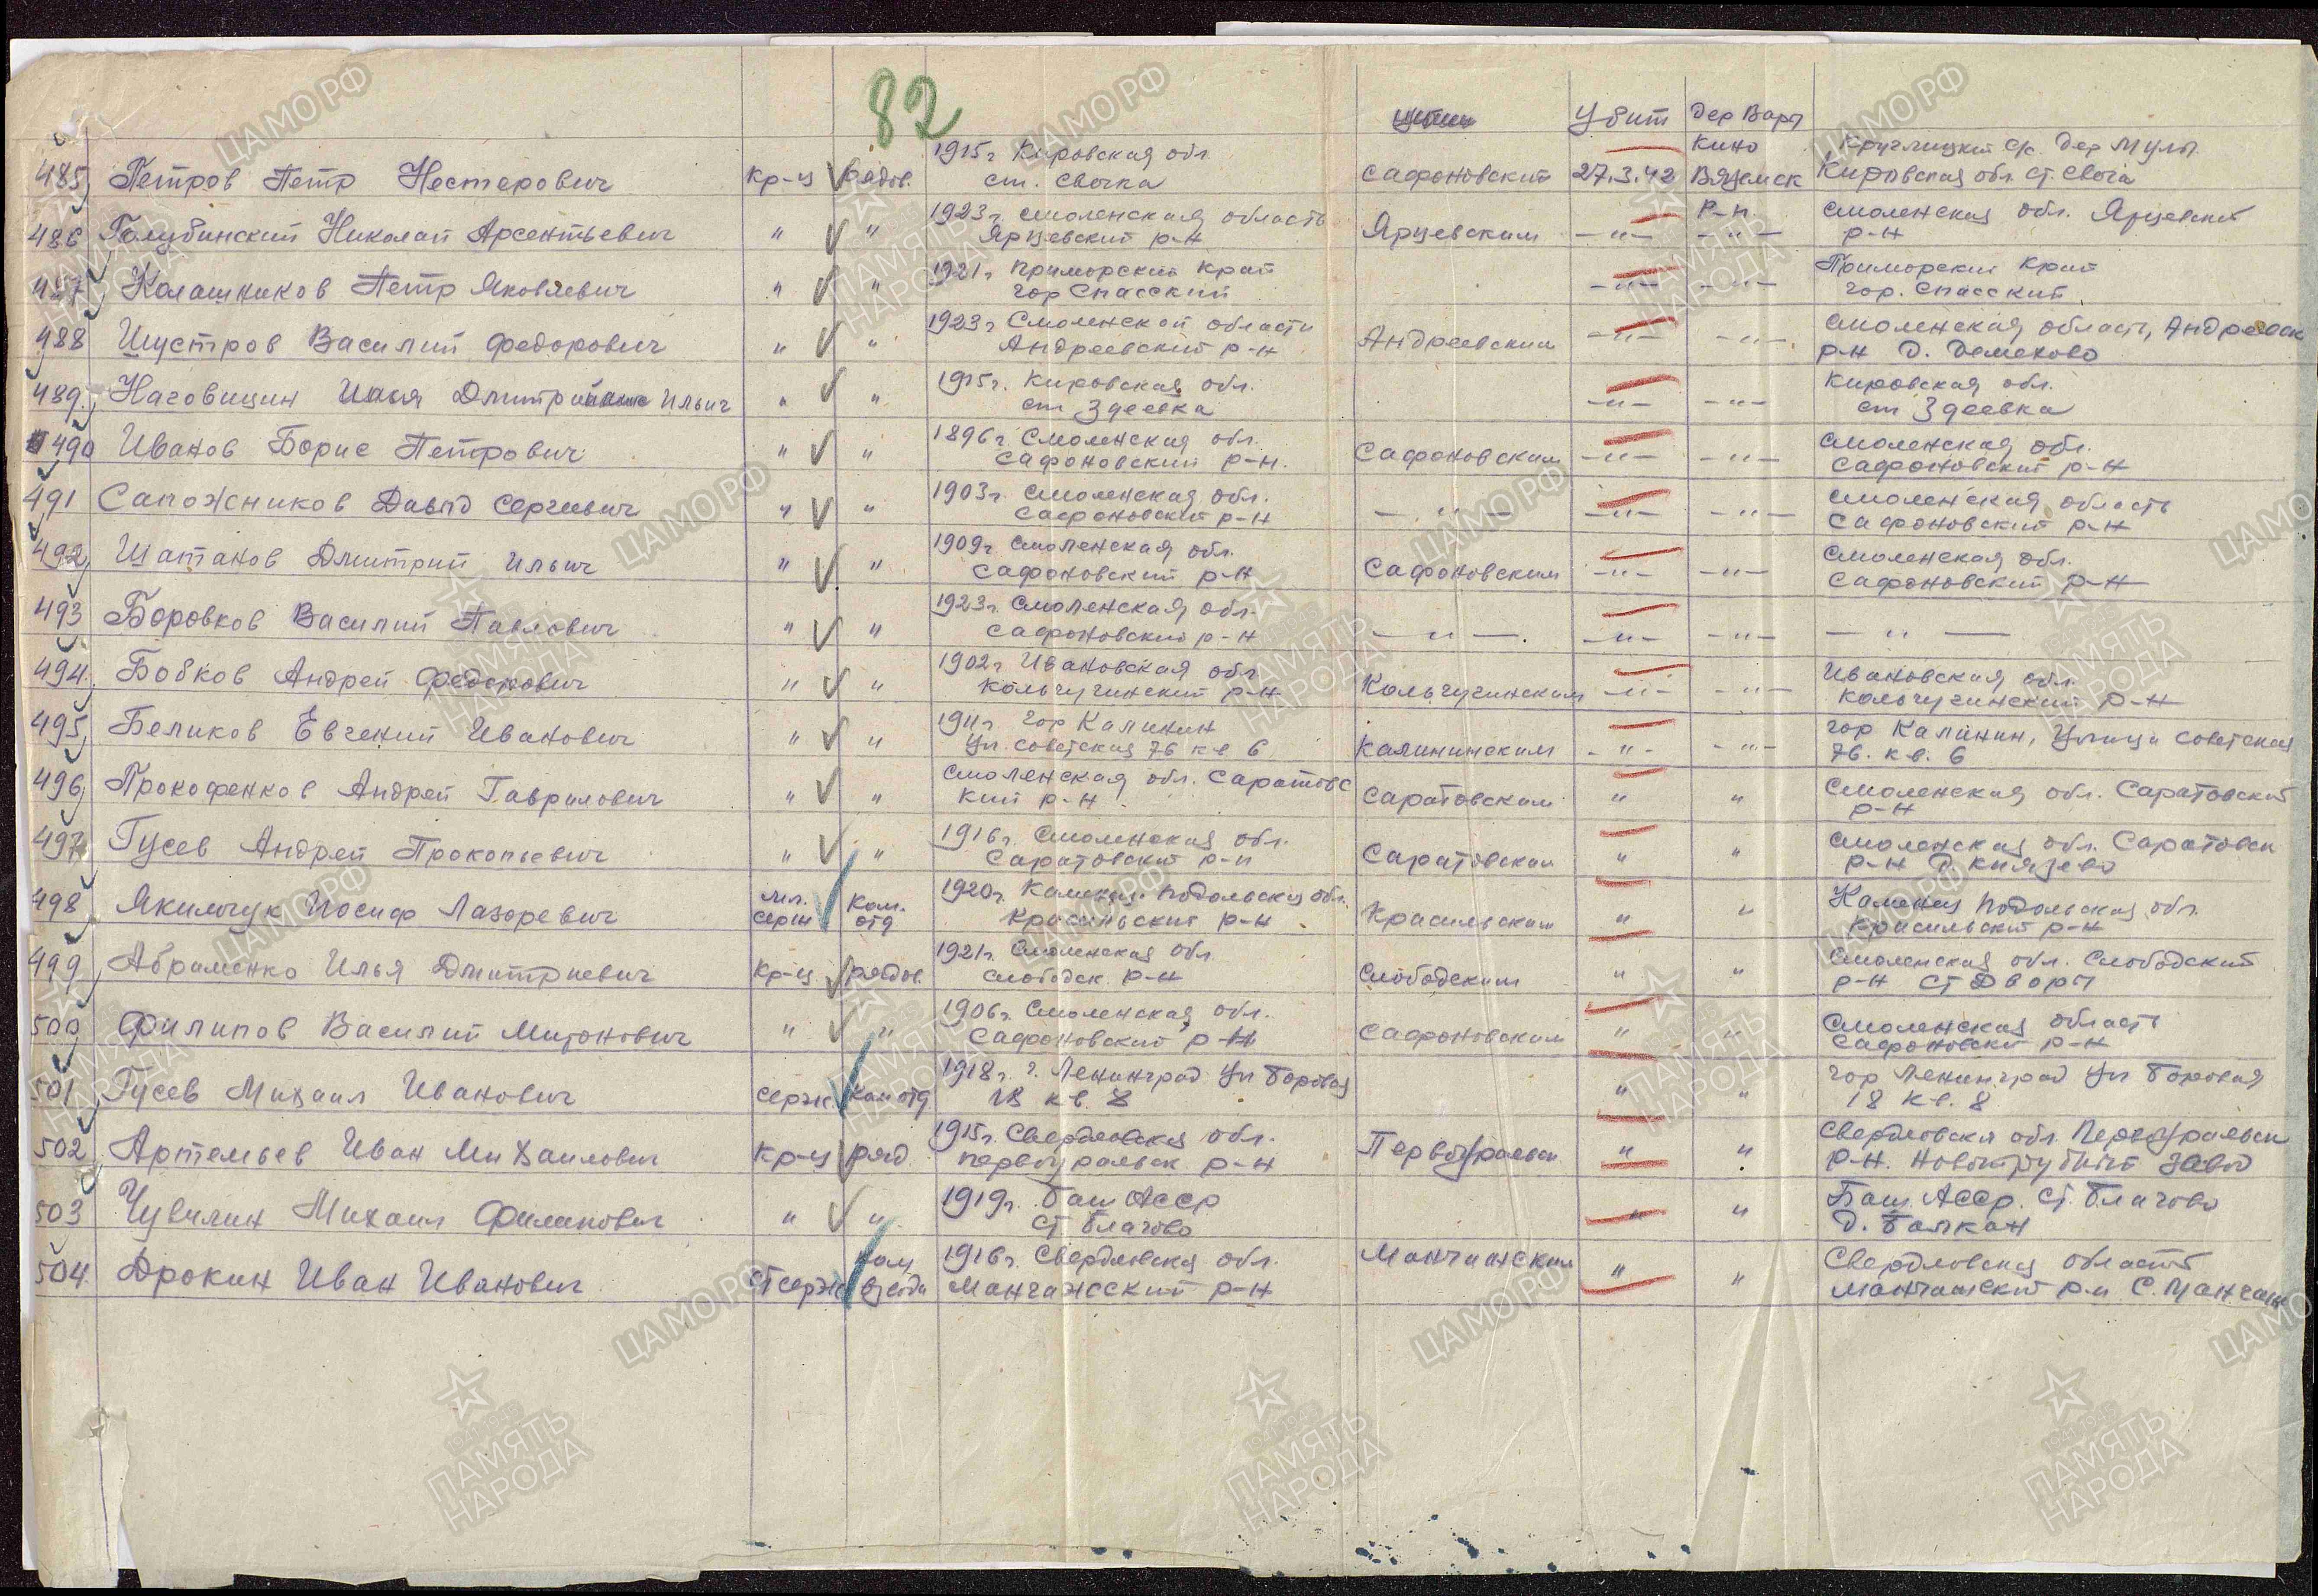 82
Убит Дер Вары
1915г Кировская обл. Кино Круглицкий с/с. Дер Мулы
485 Петров Петр Нестерович Кр-ц рядов. ст. Свечка Сафоновский 27.3.42 Вяземск Кировская обл. ст. Свеча
1923г. Смоленская область Р-н. Смоленская обл. Ярцевский
486 Голубинский Николай Арсентьевич " " Ярцевский р-н Ярцевским -"- -"- р-н
1921г Приморский край Приморский край
487 Калашников Петр Яковлевич " " гор Спасский -"- -"- гор. Спасский
1923г Смоленской области Смоленская область, Андреевск
488 Шустров Василий Федорович " " Андреевский р-н Андреевским -"- -"- р-н Д. Демехово
1915г. Кировская обл. Кировская обл.
489. Наговицин Илья Ильич " " ст Здеевка -"- -"- ст Здеевка
1896г. Смоленская обл. Смоленская обл.
490 Иванов Борис Петрович " " Сафоновский р-н. Сафоновским -"- -"- Сафоновский р-н
1903г. Смоленская обл. Смоленская область
491 Сапожников Давыд Сергеевич " " Сафоновский р-н -"- -"- -"- Сафоновский р-н
1909г. Смоленская обл. Смоленская обл.
492 Шатанов Дмитрий Ильич " " Сафоновский р-н Сафоновским -"- -"- Сафоновский р-н
1923г. Смоленская обл.
493 Боровков Василий Павлович " " Сафоновский р-н -"-. -"- -"- -"-
1902г Ивановская обл Ивановская обл.
494. Бобков Андрей Федорович " " Кольчугинский р-н Кольчугинским -"- -"- Кольчугинский р-н
1911г. гор Калинин гор Калинин, Улица Советская
495 Беликов Евгений Иванович " " Ул. Советская 76 кв 6 Калининским -"- -"- 76. кв. 6
Смоленская обл. Саратовс Смоленская обл. Саратовский
496 Прокофенков Андрей Гаврилович " " кий р-н. Саратовским " " р-н
1916г. Смоленская обл. Смоленская обл. Саратовск
497 Гусев Андрей Прокопьевич " " Саратовский р-н Саратовским " " р-н Д Князево
мл. Ком. 1920г. Каменец Подольская обл. Каменец Подольская обл.
498 Якимчук Иосиф Лазоревич серж отд Красильский р-н Красильским " " Красильский р-н
1921г. Смоленская обл Смоленская обл. Слободский
499 Абраменко Илья Дмитриевич Кр-ц рядов. слободск. р-н Слободским " " р-н ст Дворы
1906г. Смоленская обл. Смоленская область
500 Филипов Василий Миронович " " Сафоновский р-н Сафоновским " " Сафоновский р-н
1918г. г. Ленинград Ул Боровая гор Ленинград Ул Боровая
501 Гусев Михаил Иванович серж ком отд 18 кв. 8 " " 18 кв. 8
1915г. Свердловская обл. Свердловская обл. Первоуральск
502 Артемьев Иван Михайлович Кр-ц ряд. первоуральск р-н Первоуральск. " " р-н. Новотрубный завод
1919г. Баш АССР Баш. АССР. ст. Благово
503 Чувилин Михаил Филипович " " ст Благово " " д. Балкан
ком 1916г. Свердловская обл. Манчажским Свердловская область
504. Дрокин Иван Иванович ст серж взвода Манчажсский р-н " " Манчажский р-н С. Манчаж